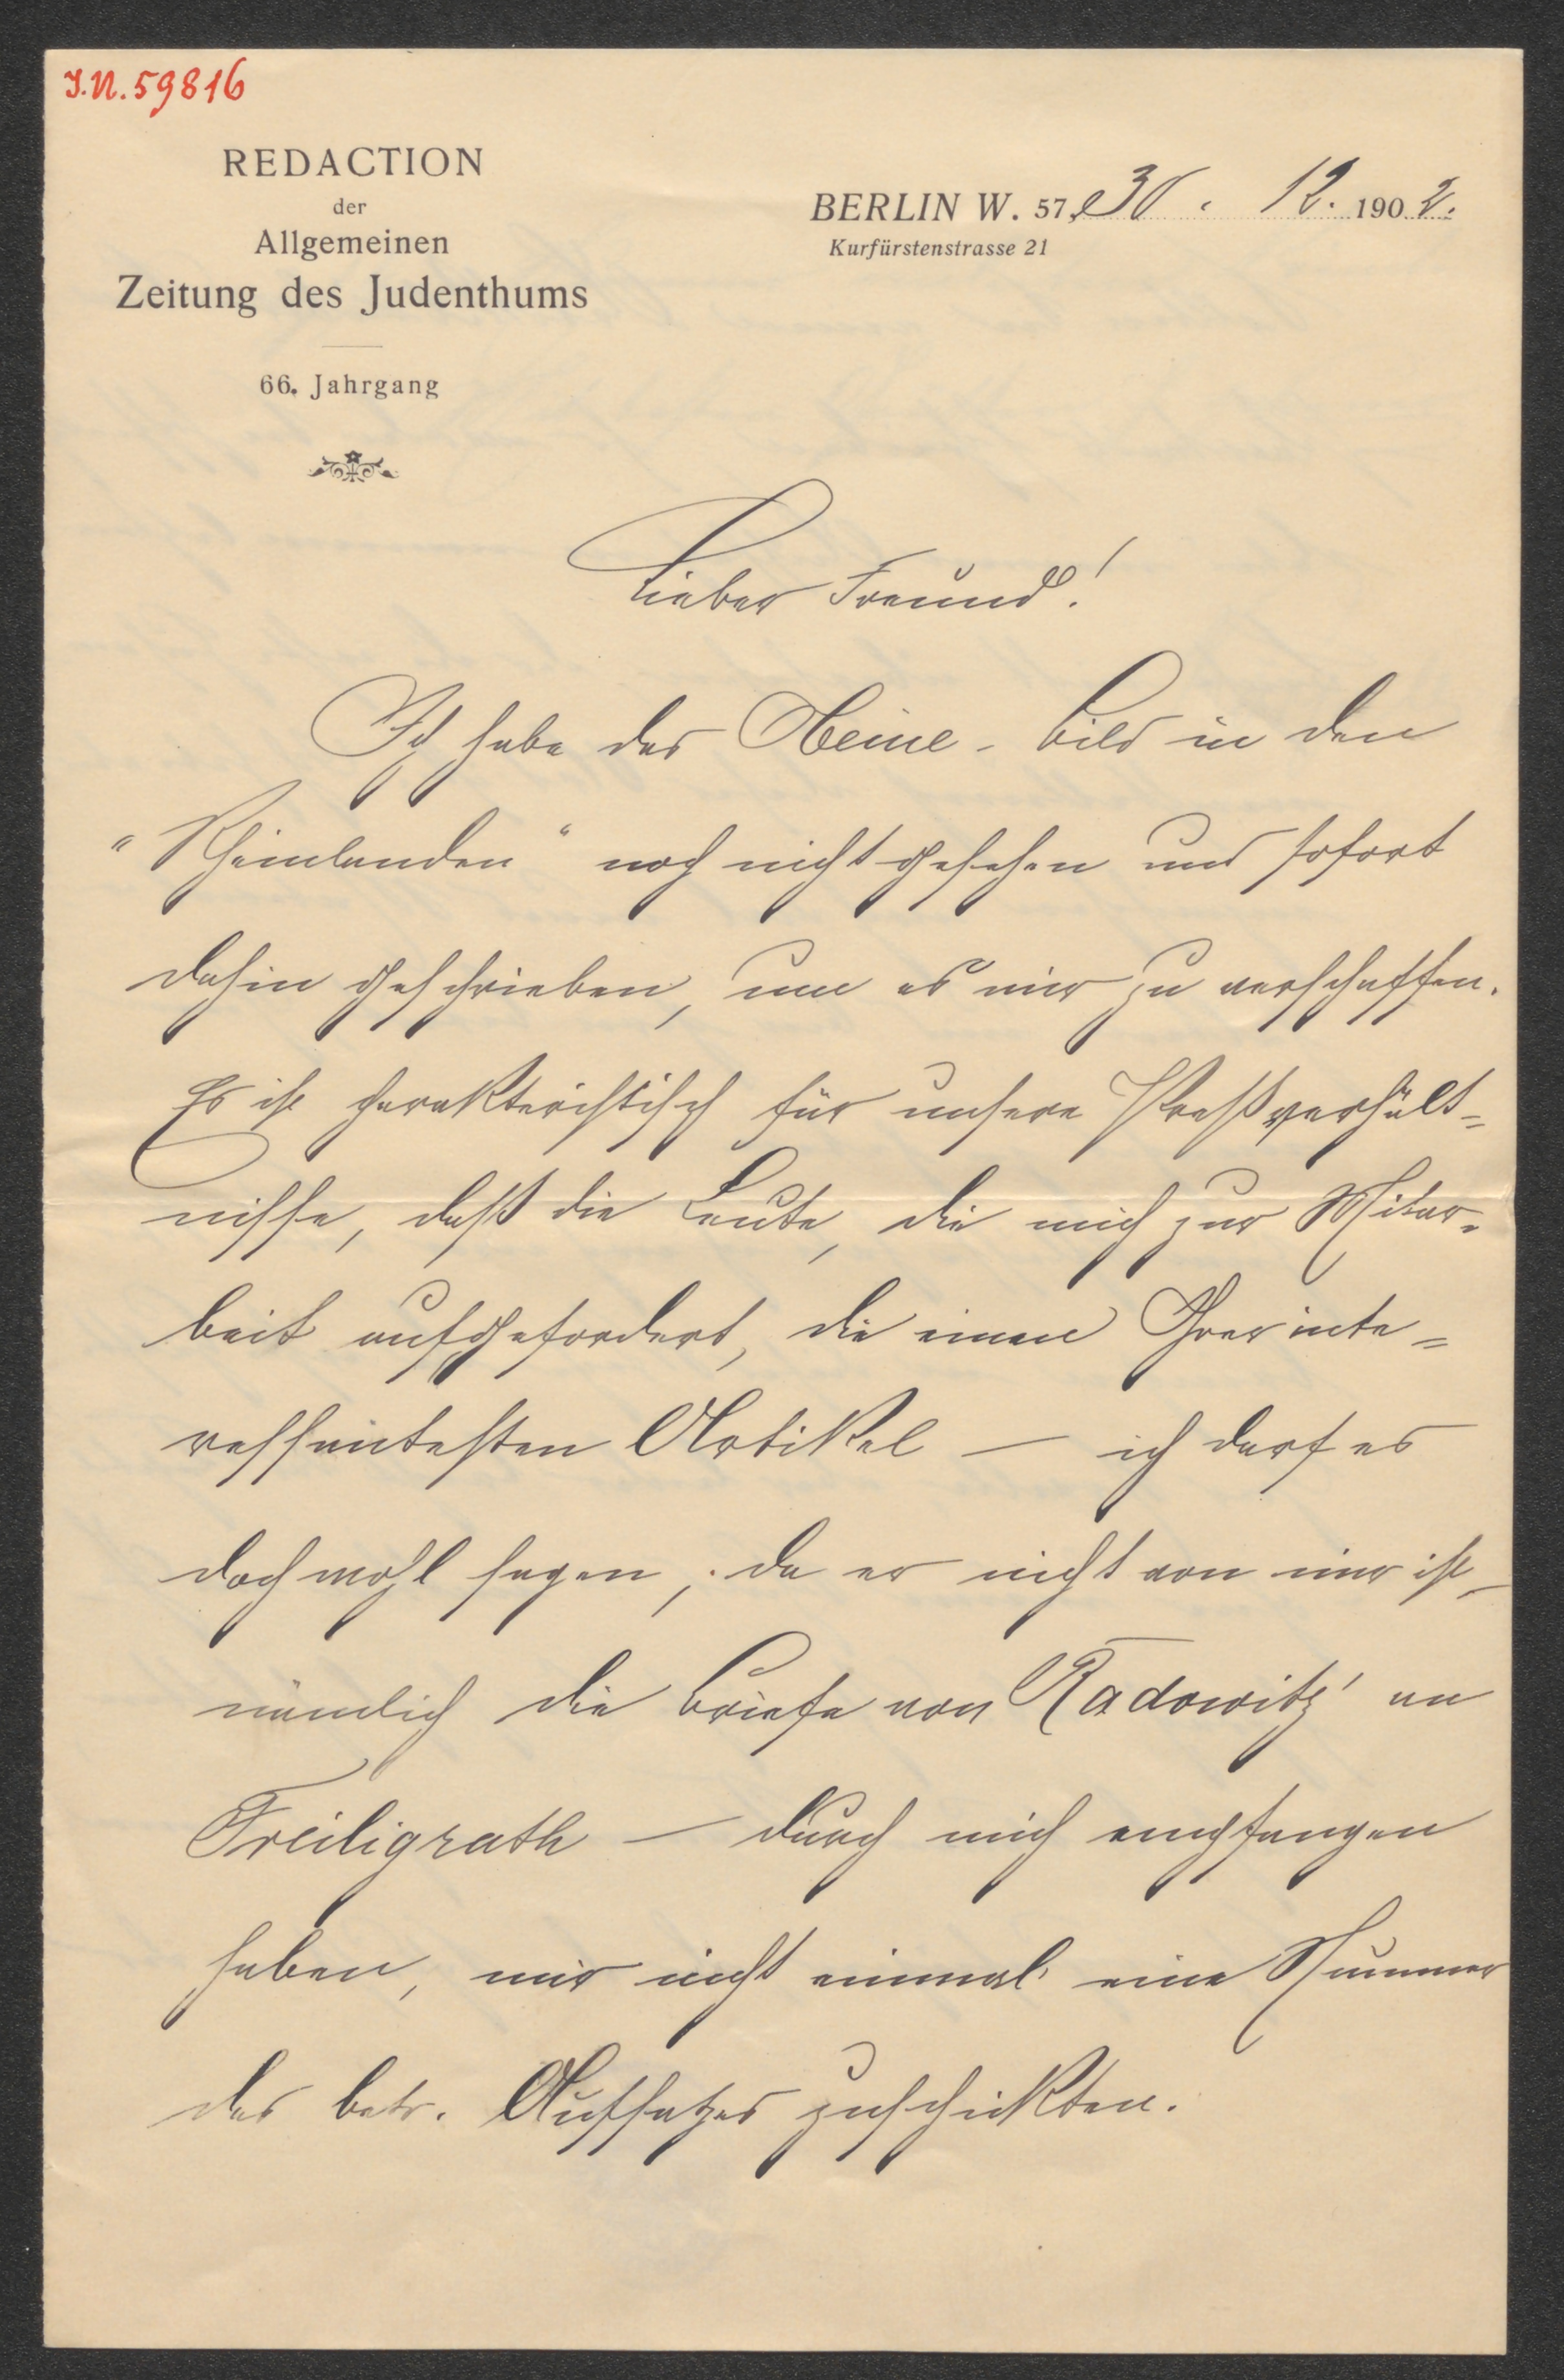 I.N. 59816
REDACTION
der
Allgemeinen
Zeitung des Judenthums
66. Jahrgang
BERLIN W. 57, d 30. 12. 1902.
Kurfürstenstrasse 21
Lieber Freund!
Ich habe das Heine-Bild in den
"Rheinlanden" noch nicht gesehen und sofort
dahin geschrieben, um es mir zu verschaffen.
Es ist charakteristisch für unsere Preßverhält-
nisse, daß die Leute, die mich zur Mitar-
beit aufgefordert, die einen Ihrer inte-
ressantesten Artikel — ich darf es
doch wohl sagen, da er nicht von mir ist,
nämlich die Briefe von Radowitz' an
Freiligrath — durch mich empfangen
haben, mir nicht einmal eine Nummer
des betr. Aufsatzes zuschickten.